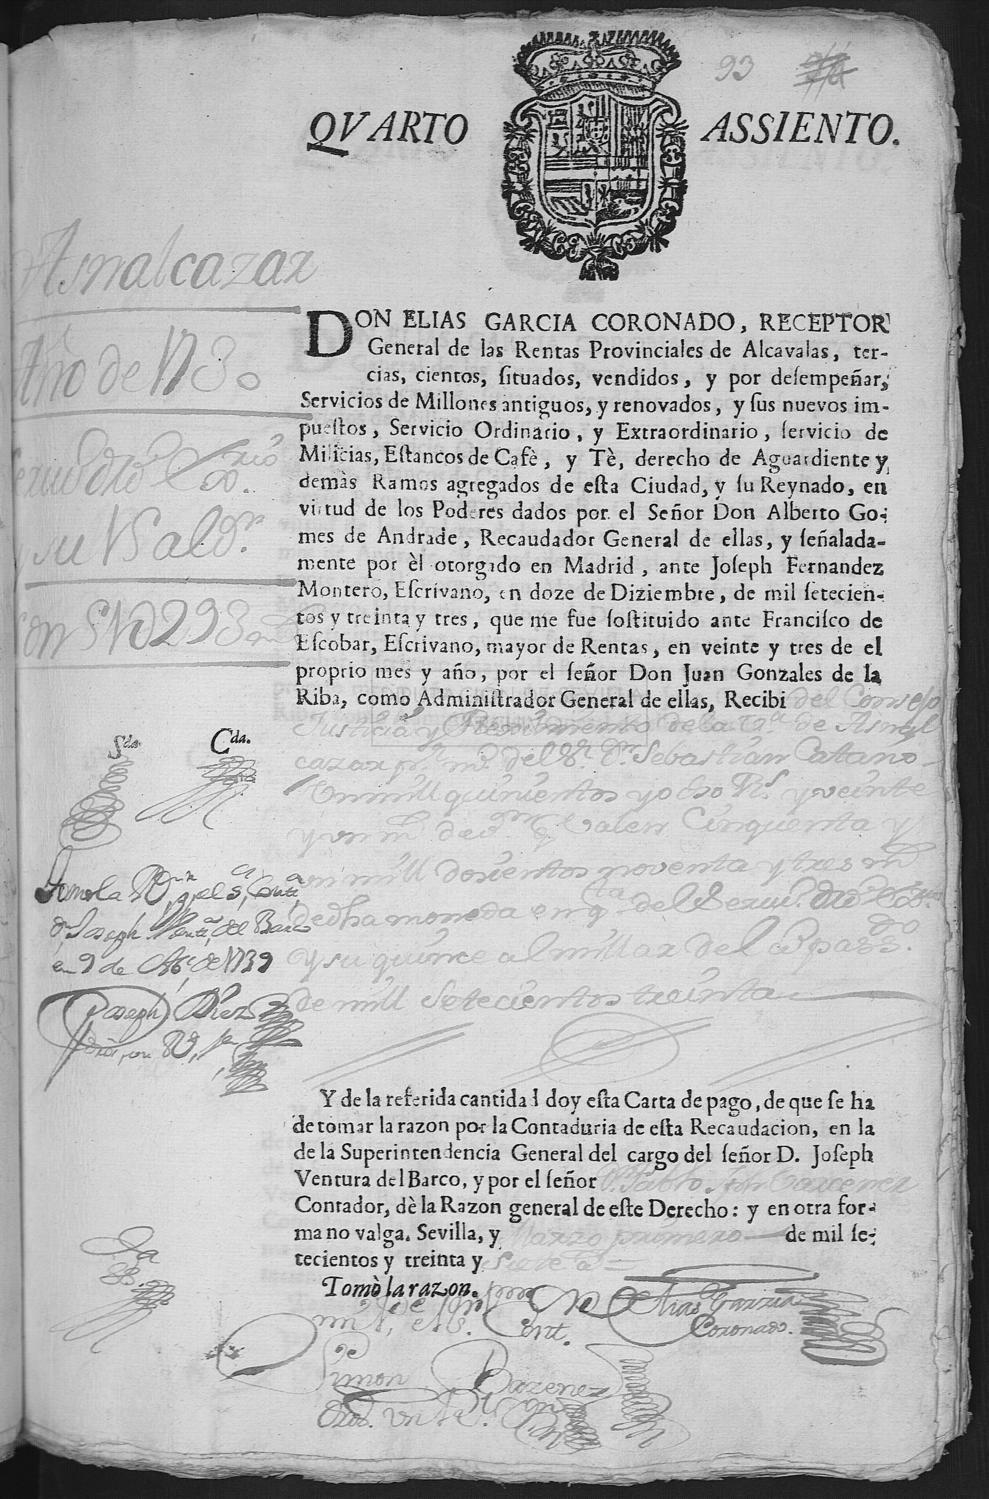 93
QVARTO ASSIENTO.
Asnalcazar
Año de 1730
Servicio Ordrio. y Extrio.
y su 15 al
con 51V293 m
DON ELIAS GARCIA CORONADO, RECEPTOR
General de las Rentas Provinciales de Alcavalas, ter-
cias, cientos, situados, vendidos, y por desempeñar,
Servicios de Millones antiguos, y renovados, y sus nuevos im-
puestos, Servicio Ordinario, y Extraordinario, servicio de
Milicias, Estancos de Cafè, y Tè, derecho de Aguardiente y
demàs Ramos agregados de esta Ciudad, y su Reynado, en
virtud de los Poderes dados por el Señor Don Alberto Go-
mes de Andrade, Recaudador General de ellas, y señalada-
mente por èl otorgado en Madrid, ante Joseph Fernandez
Montero, Escrivano, en doze de Diziembre, de mil setecien-
tos y treinta y tres, que me fue sostituido ante Francisco de
Escobar, Escrivano, mayor de Rentas, en veinte y tres de el
proprio mes y año, por el señor Don Juan Gonzales de la
Riba, como Administrador General de ellas, Recibi del Consejo
Justicia y Reximiento de la Va. de Asnal
cazar pr. mo. del Sr. Dn. Sebastian Catano
mill quinientos y ocho Rs. y veinte
y un ms. de von. q. valen Cinquenta y
un mill doscientos noventa y tres ms
de dha moneda en qta. del Servo. Ordo. y Exo.
y su quince al millar del año passdo.
de mill setecientos treinta
Sda. Cda.
Tomé la Rn.
Dn. Joseph Venta. del Barco
en 9 de de 1739
Joseph Diez
Y de la referida cantidad doy esta Carta de pago, de que se ha
de tomar la razon por la Contaduria de esta Recaudacion, en la
de la Superintendencia General del cargo del señor D. Joseph
Ventura del Barco, y por el señor Dn. Pablo
Contador, dè la Razon general de este Derecho: y en otra for-
ma no valga. Sevilla, y Marzo primero de mil se-
tecientos y treinta y siete as
Tomò la razon.
Elias Garzia
Coronado.
Simon